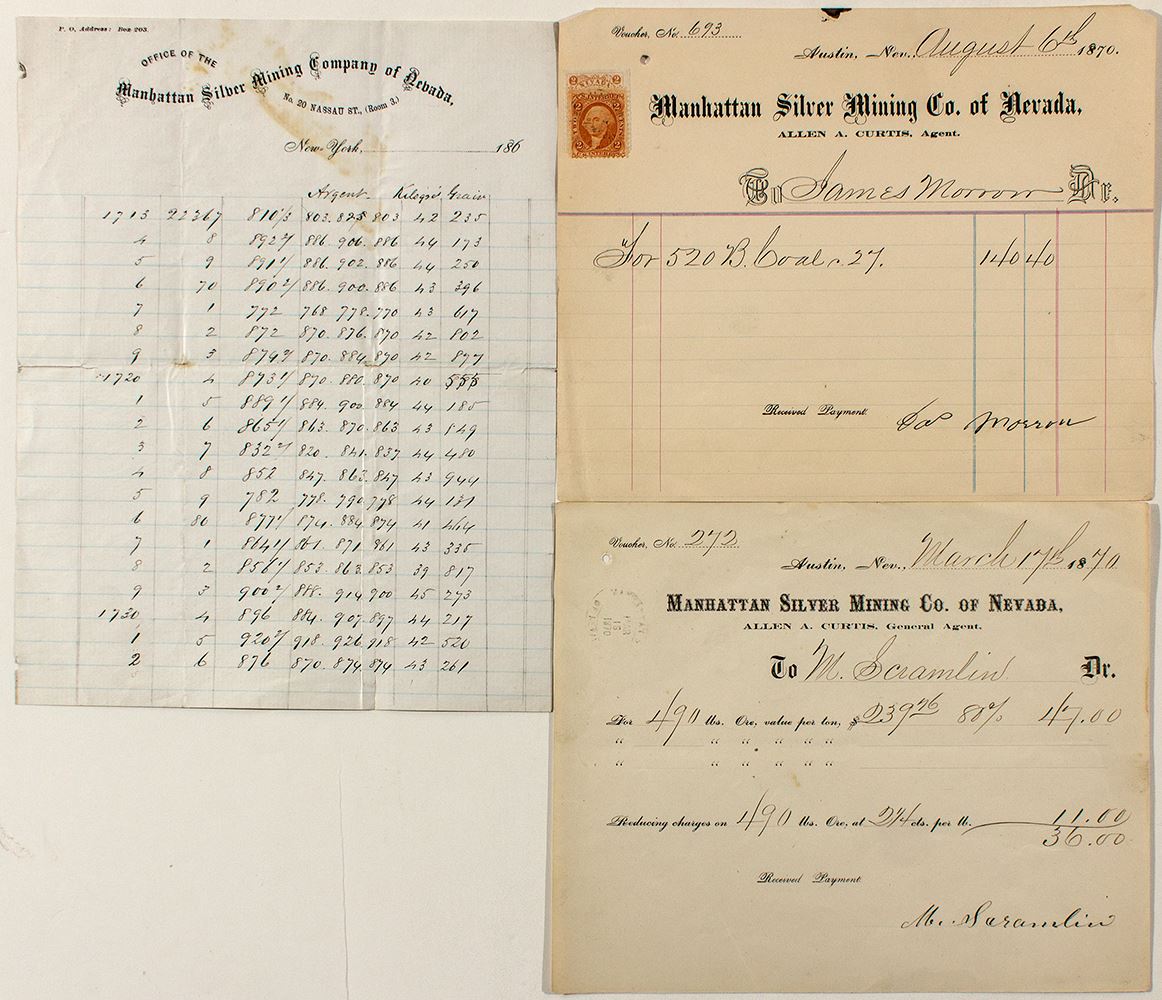 P. O. Address: Box 203.
OFFICE OF THE
Manhattan Silver Mining Company of Nevada,
No. 20 NASSAU ST., (Room 3.)
New-York, 186
Argent Kilogs Grain
1713 22367 810 1/3 803. 825 803 42 235
4 8 892 886. 906. 886 44 173
5 9 891 886. 902. 886 44 250
6 70 890 886. 900. 886 43 396
7 1 772 768 778. 770 43 617
8 2 872 870. 876. 870 42 802
9 3 879 870. 884 870 42 877
1720 4 873 870. 880. 870 40 555
1 5 889 884. 900. 884 44 185
2 6 865 863. 870. 863 43 849
3 7 832 820. 841. 837 44 480
4 8 852 847. 863. 847 43 944
5 9 782 778. 790 778 44 131
6 80 877 874. 884 874 41 464
7 1 864 861. 871 861 43 335
8 2 856 853. 863. 853 39 817
9 3 900 888. 914 900 45 273
1730 4 896 884. 907. 897 44 217
1 5 920 918. 926 918 42 520
2 6 876 870. 874. 874 43 261
Voucher, No. 693
Austin, Nev., August 6th 1870.
Manhattan Silver Mining Co. of Nevada,
ALLEN A. CURTIS, Agent.
To James Morrow Dr.
For 520 B. Coal c 27. 140 40
Received Payment.
Jas Morrow
Voucher, No. 272
Austin, Nev., March 17th 1870
MANHATTAN SILVER MINING CO. OF NEVADA,
ALLEN A. CURTIS, General Agent.
To M. Scramlin Dr.
For 490 lbs. Ore, value per ton, $ 239 76 80% 47.00
" " " " " "
" " " " " "
Reducing charges on 490 lbs. Ore, at 2 1/4 cts. per lb. 11.00
36.00
Received Payment.
M. Scramlin